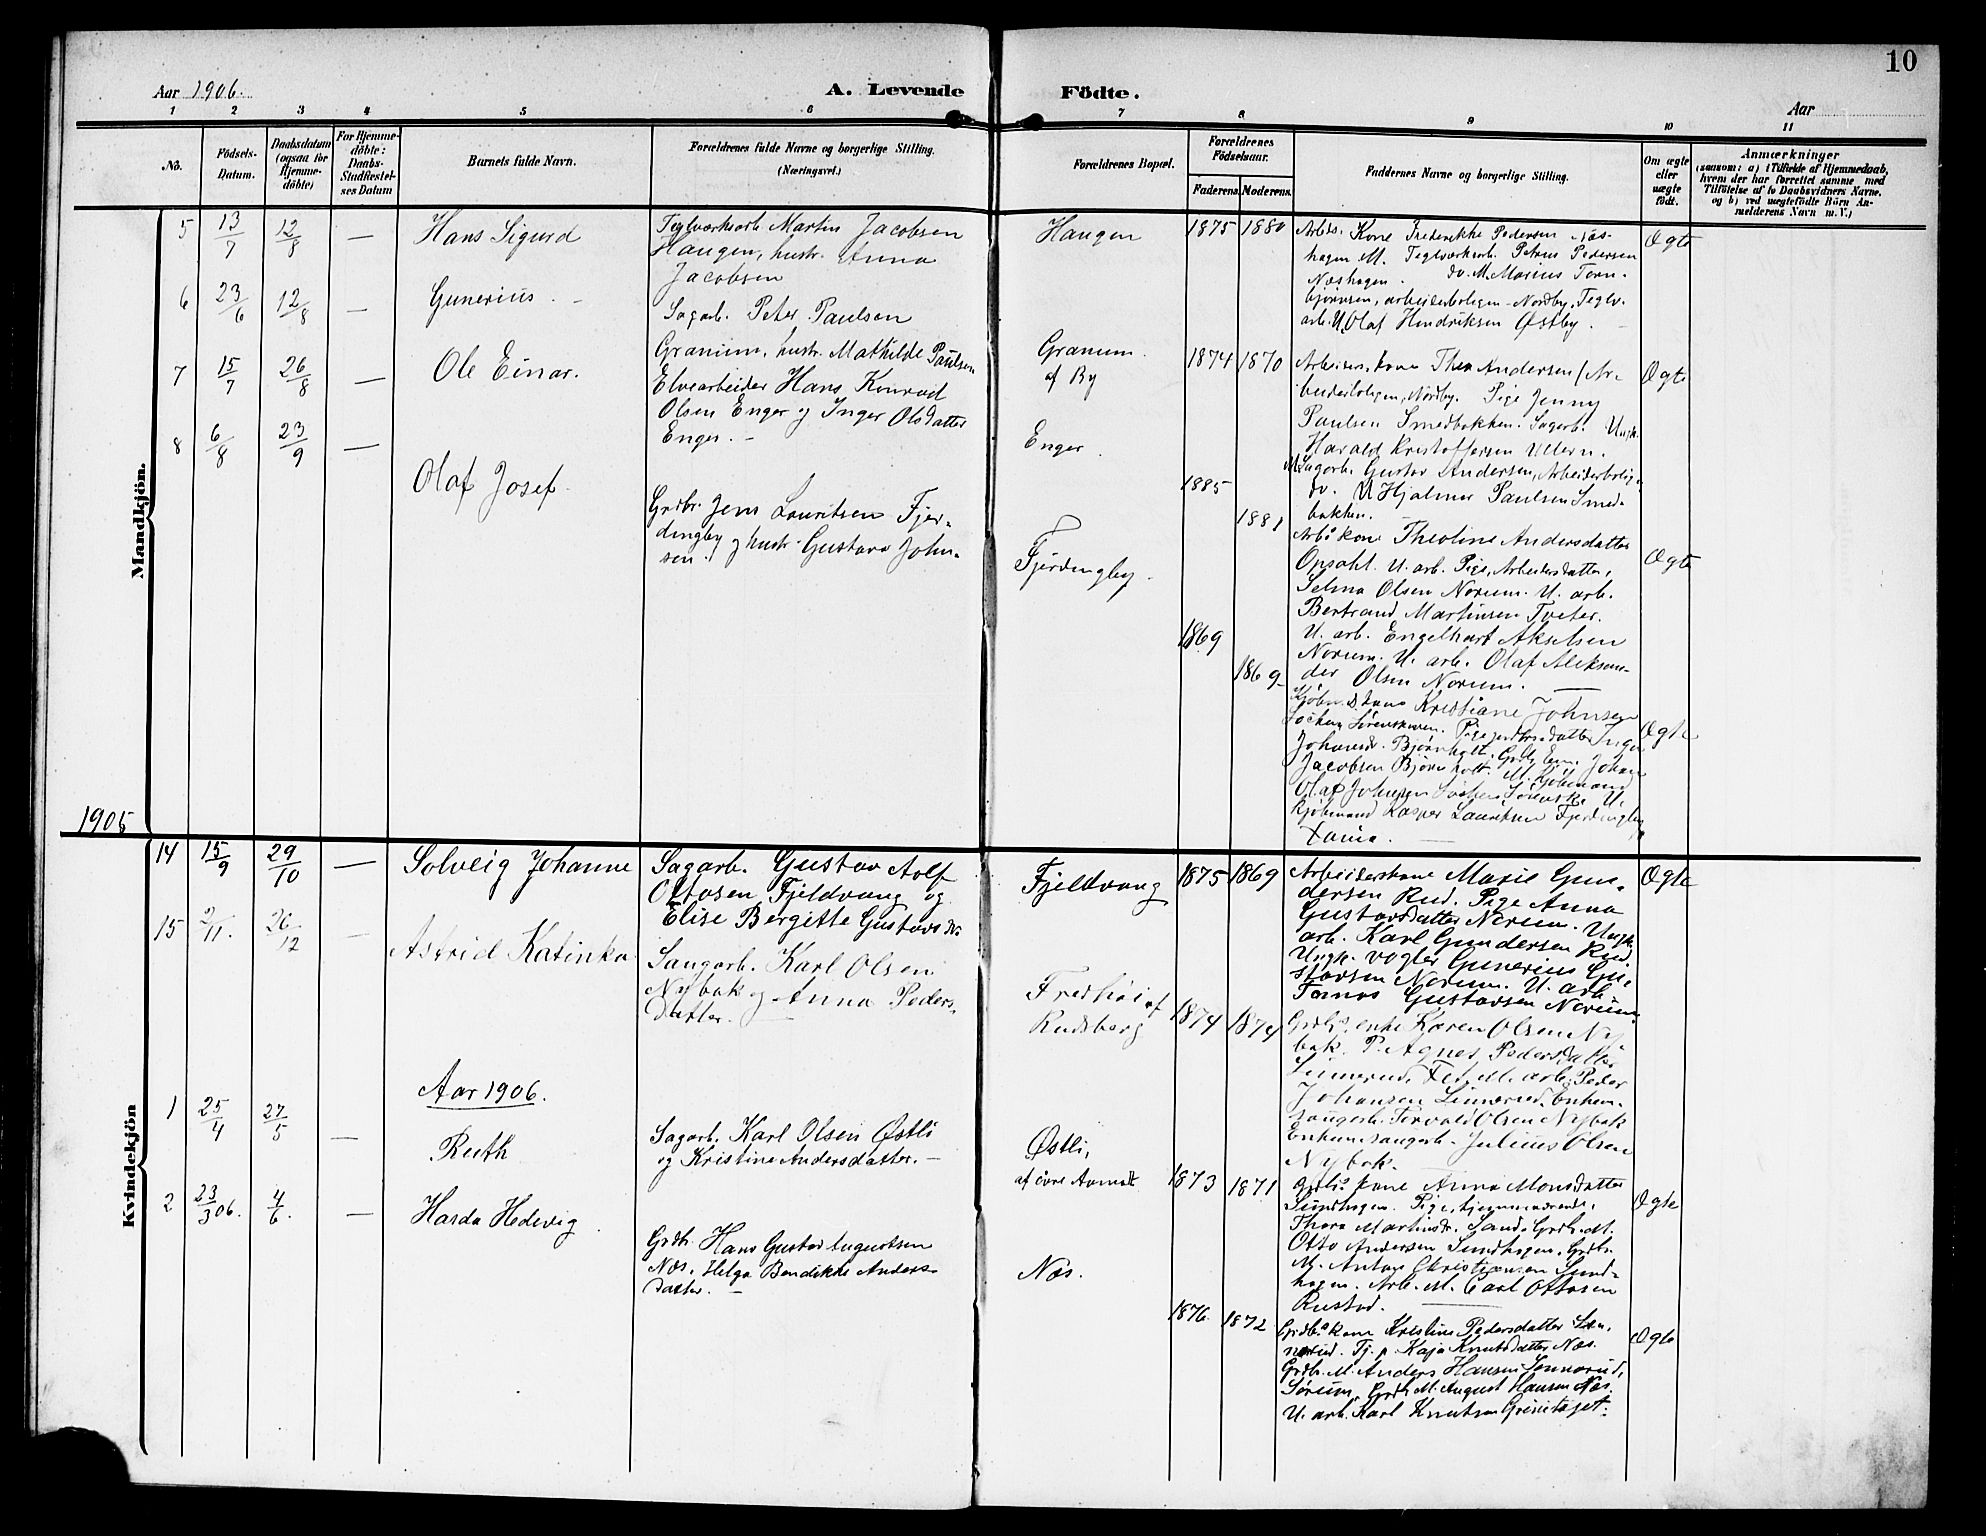 10
Aar 1906.
A. Levende
Födte.
Aar
1 2 3 4 5 6 7 8 9 10 11
No.
Födsels-
Datum.
Daabsdatum
(ogsaa for
Hjemme-
döbte)
For Hjemme-
döbte:
Daabs-
Stadfæstel-
ses Datum
Barnets fulde Navn.
Forældrenes fulde Navne og borgerlige Stilling.
(Næringsvei.)
Forældrenes Bopæl.
Forældrenes
Födselsaar.
Faderens. Moderens.
Faddernes Navne og borgerlige Stilling.
Om ægte
eller
uægte
födt.
Anmærkninger
(saasom: a) i Tilfælde af Hjemmedaab,
hvem der har forrettet samme med
Tilföielse af to Daabsvidners Navne.
og b) ved uægtefödte Börn An-
melderens Navn m. V.)
Mandkjön.
5 13/7 12/8 —
Hans Sigurd
Teglværksarb. Martin Jacobsen
Haugen, hustr. Anna
Jacobsen
Haugen
1875 1880
Arbds. Kone Frederikke Pedersen Næs-
hagen M. Teglværksarb. Petrus Pedersen
Næshagen. do. M. Marius Torn-
bjørnsen, arbeiderboligen Nordby, Teglv.
arb. U. Olaf Hendriksen Østby. —
Ægte
6 23/6 12/8 —
Gunerius. —
Sagarb. Peter Paulsen
Granum, hustr. Mathilde Paulsen
Granum.
af By
1874 1870
Arbeiders kone Thea Andersen Ar-
beiderboligen, Nordby. Pige Jenny
Paulsen Smedbakken. Sagarb. Ungk.
Harald Kristoffersen Ullern.
M. Sagarb. Gustav Andersen, Arbeiderbolig
do. U Hjalmar Paulsen Smed-
bakken.
Ægte
7 15/7 26/8 —
Ole Einar.
Elvearbeider Hans Konrad
Olsen Enger og Inger Olsdatter
Enger. —
Enger.
1885
1881
Arbs kone Theoline Andersdatter
Opsahl. U. arb. Pige, Arbeidersdatter,
Selma Olsen Norum. U. arb.
Bertrand Martinsen Tveter.
U. arb. Engelhart Akselsen
Norum. U. arb. Olaf Aleksan-
der Olsen Norum. —
Ægte
8 6/8 23/9 —
Olaf Josef —
Grdbr. Jens Lauritsen Fjer-
dingby og hustr. Gustava John-
sen.
Fjerdingby.
1869
1869
Kjøbm.s kone Kristiane Johnsen
Pige
Johansdr. Bjørnholt. Johan
Jacobsen Bjørnholt. M. Kjøbmand
Olaf Johnsen U.
Kjøbmand Kasper Lauritsen Fjerdingby
—
Ægte
1905
Kvindekjön
14 15/9 29/10 —
Solveig Johanne
Sagarb. Gustav Adolf
Ottosen Fjeldvang og
Elise Bergitte Gustavsdr.
Fjeldvang
1875 1869
Arbeiderskone Marie Gun-
dersen Rud. Pige Anna
Gustavsdatter Norum. Ungk.
arb. Karl Gundersen Rud.
Ungk. vogter Gunerius Gu-
stavsen Norum. U. arb.
Tomas Gustavsen Norum.
Ægte
15 2/11. 26/12 —
Astrid Katinka
Saugarb. Karl Olsen
Nybak og Anna Peders-
datter. —
Fredhöi af
Rudsberg
1874 1874
Grdbrs enke Karen Olsen Ny-
bak. P. Agnes Pedersdatter
Linnerud, Fet. M. arb. Peder
Johansen Linnerud. Enkem.
saugarb. Torvald Olsen Nybak
Enkem. saugarb. Julius Olsen
Nybak.
Aar 1906.
1 25/4 27/5 —
Ruth
Sagarb. Karl Olsen Østli
og Kristine Andersdatter. —
Østli,
af övre Asmdt
1873 1871
Grdbs kone Anna Monsdatter
Sundhagen. Pige, hjemmeværende,
Thora Martinsdr. Sand. Grdb. M.
Otto Andersen Sundhagen. Grdb.
M. Anton Christiansen Sund-
hagen. Arb. M. Carl Ottosen
Rustad.
Ægte
2 23/3 06. 4/6. —
Harda Hedevig.
Grdbr. Hans Gustav Augustsen
Næs. Helga Bendikke Anders-
datter. —
Næs.
1876. 1872
Grdbs kone Kristine Pedersdatter Søn-
nerud. Tj. p. Kaja Knutsdatter Næs.
Grdbr. M. Anders Hansen Sønnerud,
Sørum, Grdb. M. August Hansen Næs.
U. arb. Karl Knutsen
Ægte